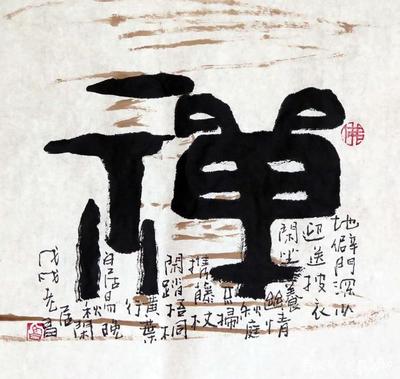 禪
地僻門深少
迎送披衣
閑坐養
幽情
秋庭
不掃
携藤杖
閑踏梧桐
黃葉
行
白居易晚
秋閑
居
戊戌
佛